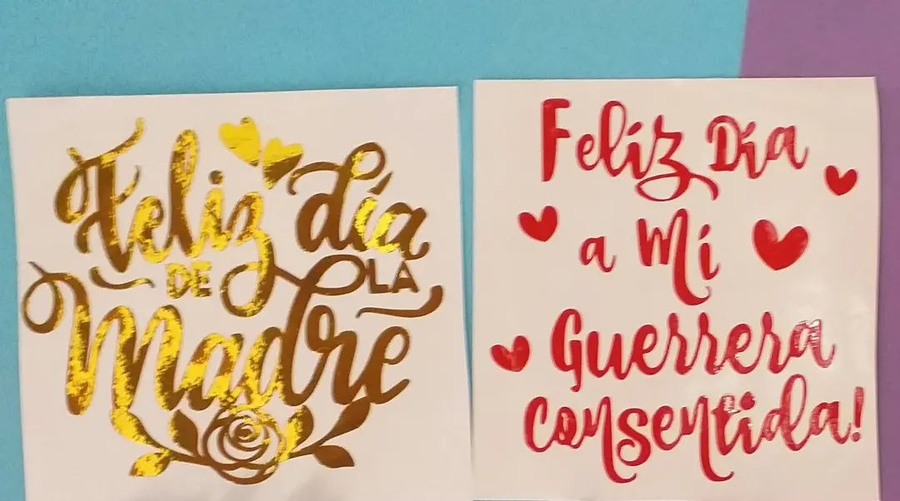 Feliz día
DE LA
Madre
Feliz Día
a Mí
Guerrera
consentida!